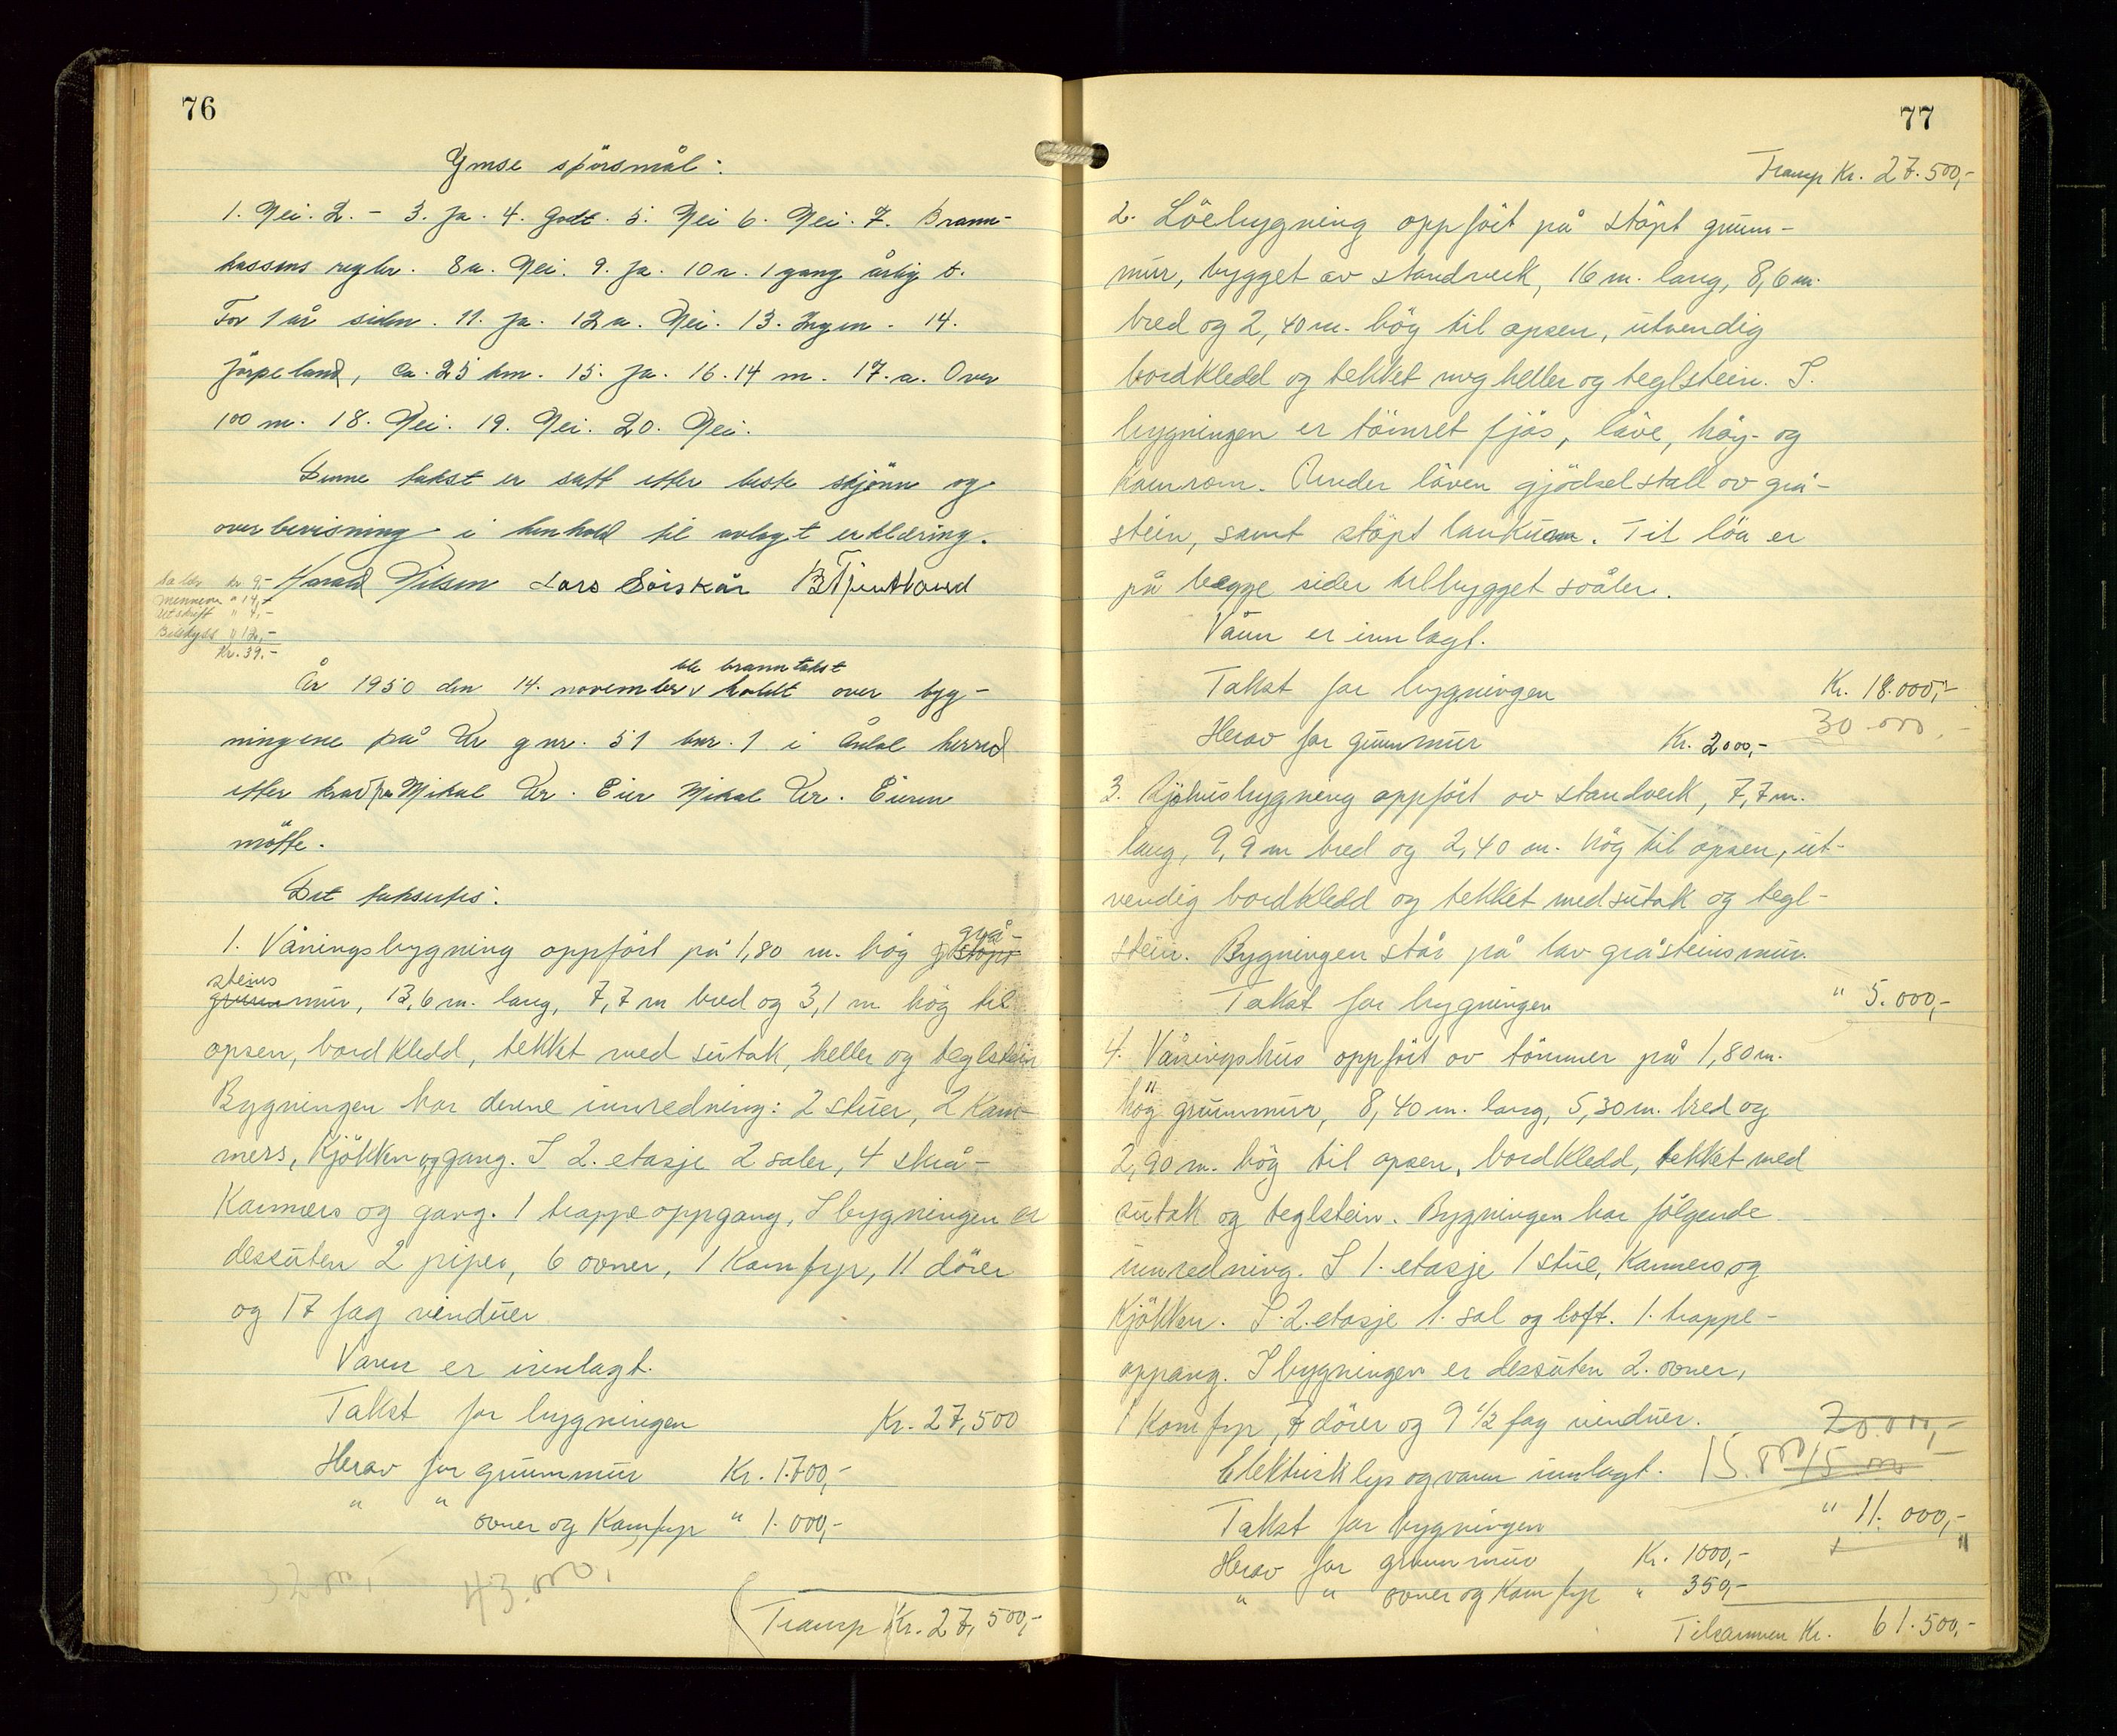 76
Ymse spörsmål:
1. Nei. 2. – 3. Ja. 4. Godt. 5. Nei 6. Nei. 7. Brann-
kassens regler. 8a. Nei. 9. Ja. 10a. 1 gang årlig b.
For 1 år siden. 11. Ja. 12a. Nei. 13. Ingen. 14.
Jörpeland, ca. 25 km. 15. Ja. 16. 14 m. 17. a. Over
100 m. 18. Nei. 19. Nei. 20. Nei.
Denne takst er satt etter beste skjönn og
overbevisning i henhold til avlagt erklæring.
Harald Nilsen Lars Söiskår
kr 9,-
mennene " 14,-
Utskrift " 4,-
Bilskyss " 12,-
Kr. 39.-
ble branntakst
År 1950 den 14. november v holdt over byg-
ningene på gnr. 51 bnr. 1 i Årdal herred
etter krav fra Mikal Eier Mikal Eieren
mötte.
Det taksertes:
grå-
1. Våningsbygning oppfört på 1,80 m. hög stöpt
steins
grunnmur, 13,6 m. lang, 7,7 m bred og 3,1 m hög til
opsen, bordkledd, tekket med sutak, heller og teglstein
Bygningen har denne innredning: 2 stuer, 2 Kam-
mers, Kjökken og gang. I 2. etasje 2 saler, 4 skrå-
Kammers og gang. 1 trappeoppgang, I bygningen er
dessuten 2 piper, 6 ovner, 1 Komfyr, 11 dörer
og 17 fag vinduer
Vann er innlagt.
Takst for bygningen Kr. 27,500
Herav for grunnmur Kr. 1.700,-
" " ovner og Komfyr " 1.000,-
32.000,- 43.000,
Transp Kr. 27,500,-
77
Transp Kr. 27.500,-
2. Löebygning oppfört på stöpt grunn-
mur, bygget av standverk, 16 m. lang, 8,6 m.
bred og 2,40 m. hög til opsen, utvendig
bordkledd og tekket mog heller og teglstein. I.
bygningen er tömret fjös, låve, höy- og
Kornrom. Under låven gjödselstall av grå-
stein, samt stöpt lankum. Til löa er
på begge sider tilbygget svåler.
Vann er innlagt.
Takst for bygningen Kr. 18.000,-
Herav for grunnmur Kr. 2000,- 30.000,-
3. bygning oppfört av standverk, 7,7 m.
lang, 9,9 m bred og 2,40 m. hög til opsen, ut-
vendig bordkledd og tekket med sutak og tegl-
stein. Bygningen står på lav gråsteinsmur.
Takst for bygningen " 5.000,-
4. Våningshus oppfört av tömmer på 1,80 m.
hög grunnmur, 8,40 m. lang, 5,30 m. bred og
2,90 m. hög til opsen, bordkledd, tekket med
sutak og teglstein. Bygningen har fölgende
innredning. I 1. etasje 1 stue, Kammers og
Kjökken. I. 2. etasje 1. sal og loft. 1. trappe-
oppang. I bygningen er dessuten 2. ovner,
1 Komfyr, 7 dörer og 9 1/2 fag vinduer. 20.000,-
Elektrisk lys og vann innlagt. 15.000 15.000
Takst for bygningen " 11.000,-
Herav for grunnmur Kr. 1000,-
" " ovner og Komfyr " 350,-
Tilsammen Kr. 61.500,-